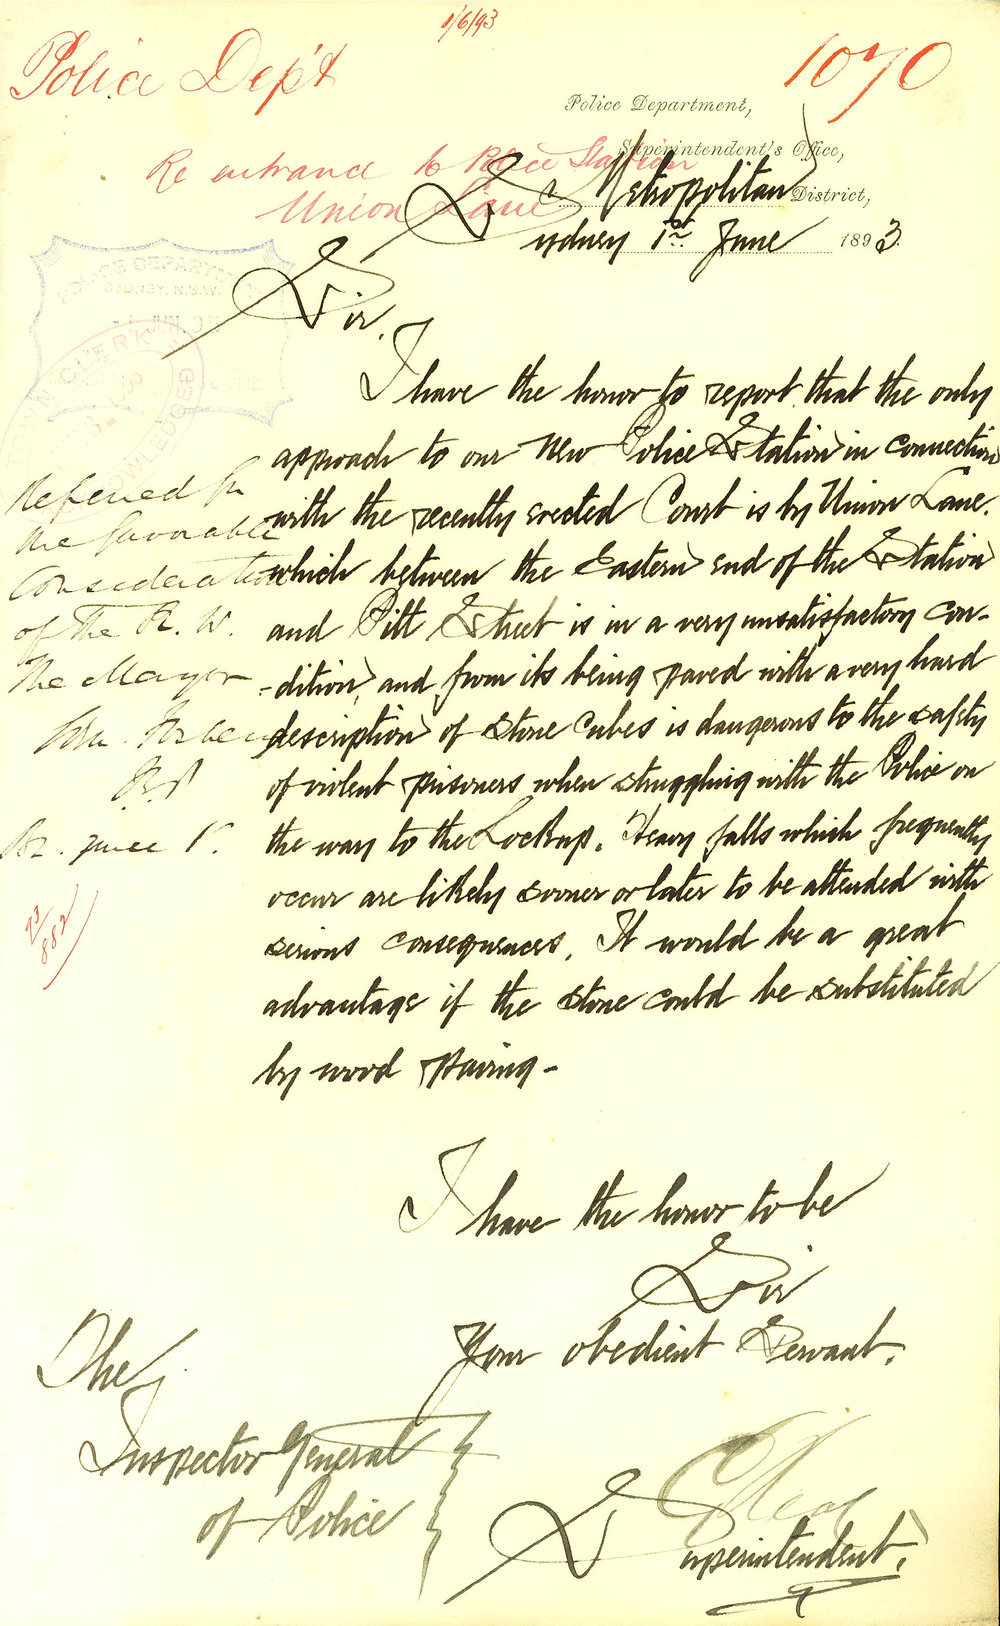 1/6/93
Police Dep't
1070
Police Department,
Superintendent's Office,
Re entrance to Police Station
Union Lane
Metropolitan District,
Sydney 1st June 1893.
POLICE DEPARTMENT
SYDNEY, N.S.W.
Sir.
I have the honor to report that the only
approach to our New Police Station in connection
with the recently erected Court is by Union Lane.
which between the Eastern end of the Station
and Pitt Street is in a very unsatisfactory con-
-dition, and from its being paved with a very hard
description of Stone Cubes is dangerous to the safety
of violent prisoners when struggling with the Police on
the way to the Lockup. Heavy falls which frequently
occur are likely sooner or later to be attended with
serious consequences. It would be a great
advantage if the Stone could be substituted
by wood paving-
Referred for
the favorable
Consideration
of The R. W.
The Mayor
93/882
I have the honor to be
Sir
Your obedient Servant.
The
Inspector General
of Police
Superintendent.